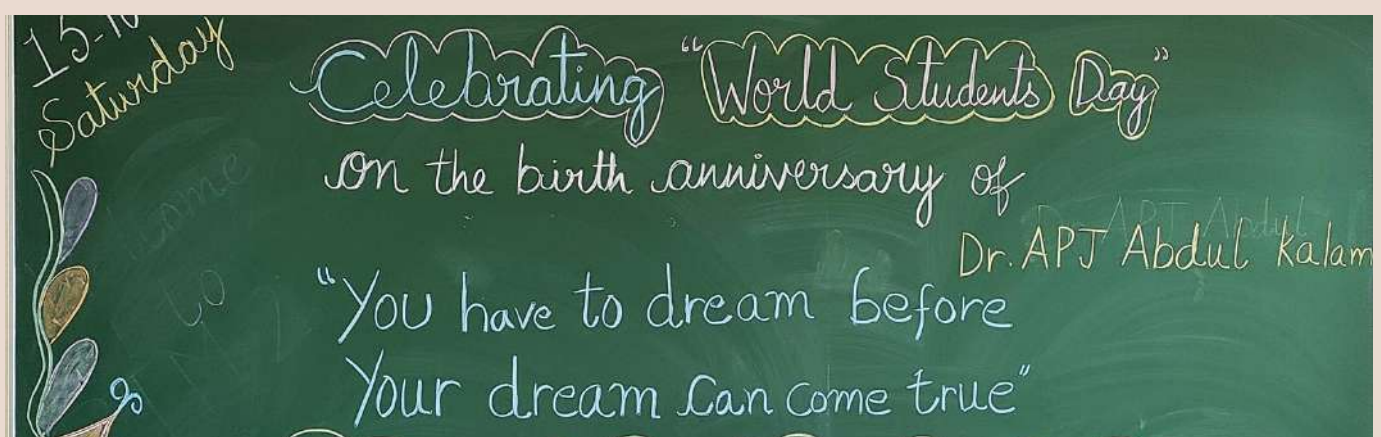 15-10
Saturday
Celebrating "World Students Day"
on the birth anniversary of
Dr. APJ Abdul Kalam
"You have to dream before
Your dream Can Come true"